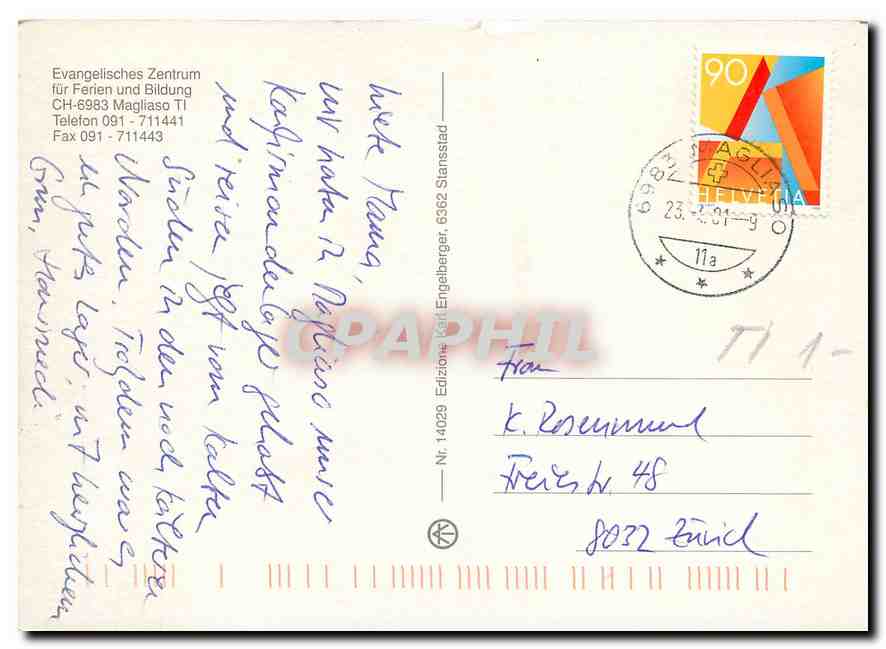 Evangelisches Zentrum
für Ferien und Bildung
CH-6983 Magliaso TI
Telefon 091 - 711441
Fax 091 - 711443
Liebe Mama,
wir haben in Magliaso unser
Konfirmandenlager gehabt
und reisen jetzt vom kalten
Süden in den noch kälteren
Norden. Trotzdem war es
ein gutes Lager. mit herzlichem
Gruss, Hansruedi
Nr. 14029 Edizione Karl Engelberger, 6362 Stansstad
90
HELVETIA
6983 MAGLIASO
23. 81-9
11a
TI 1-
Frau
K. Rosenmund
Freiestr. 48
8032 Zürich
CPAPHIL